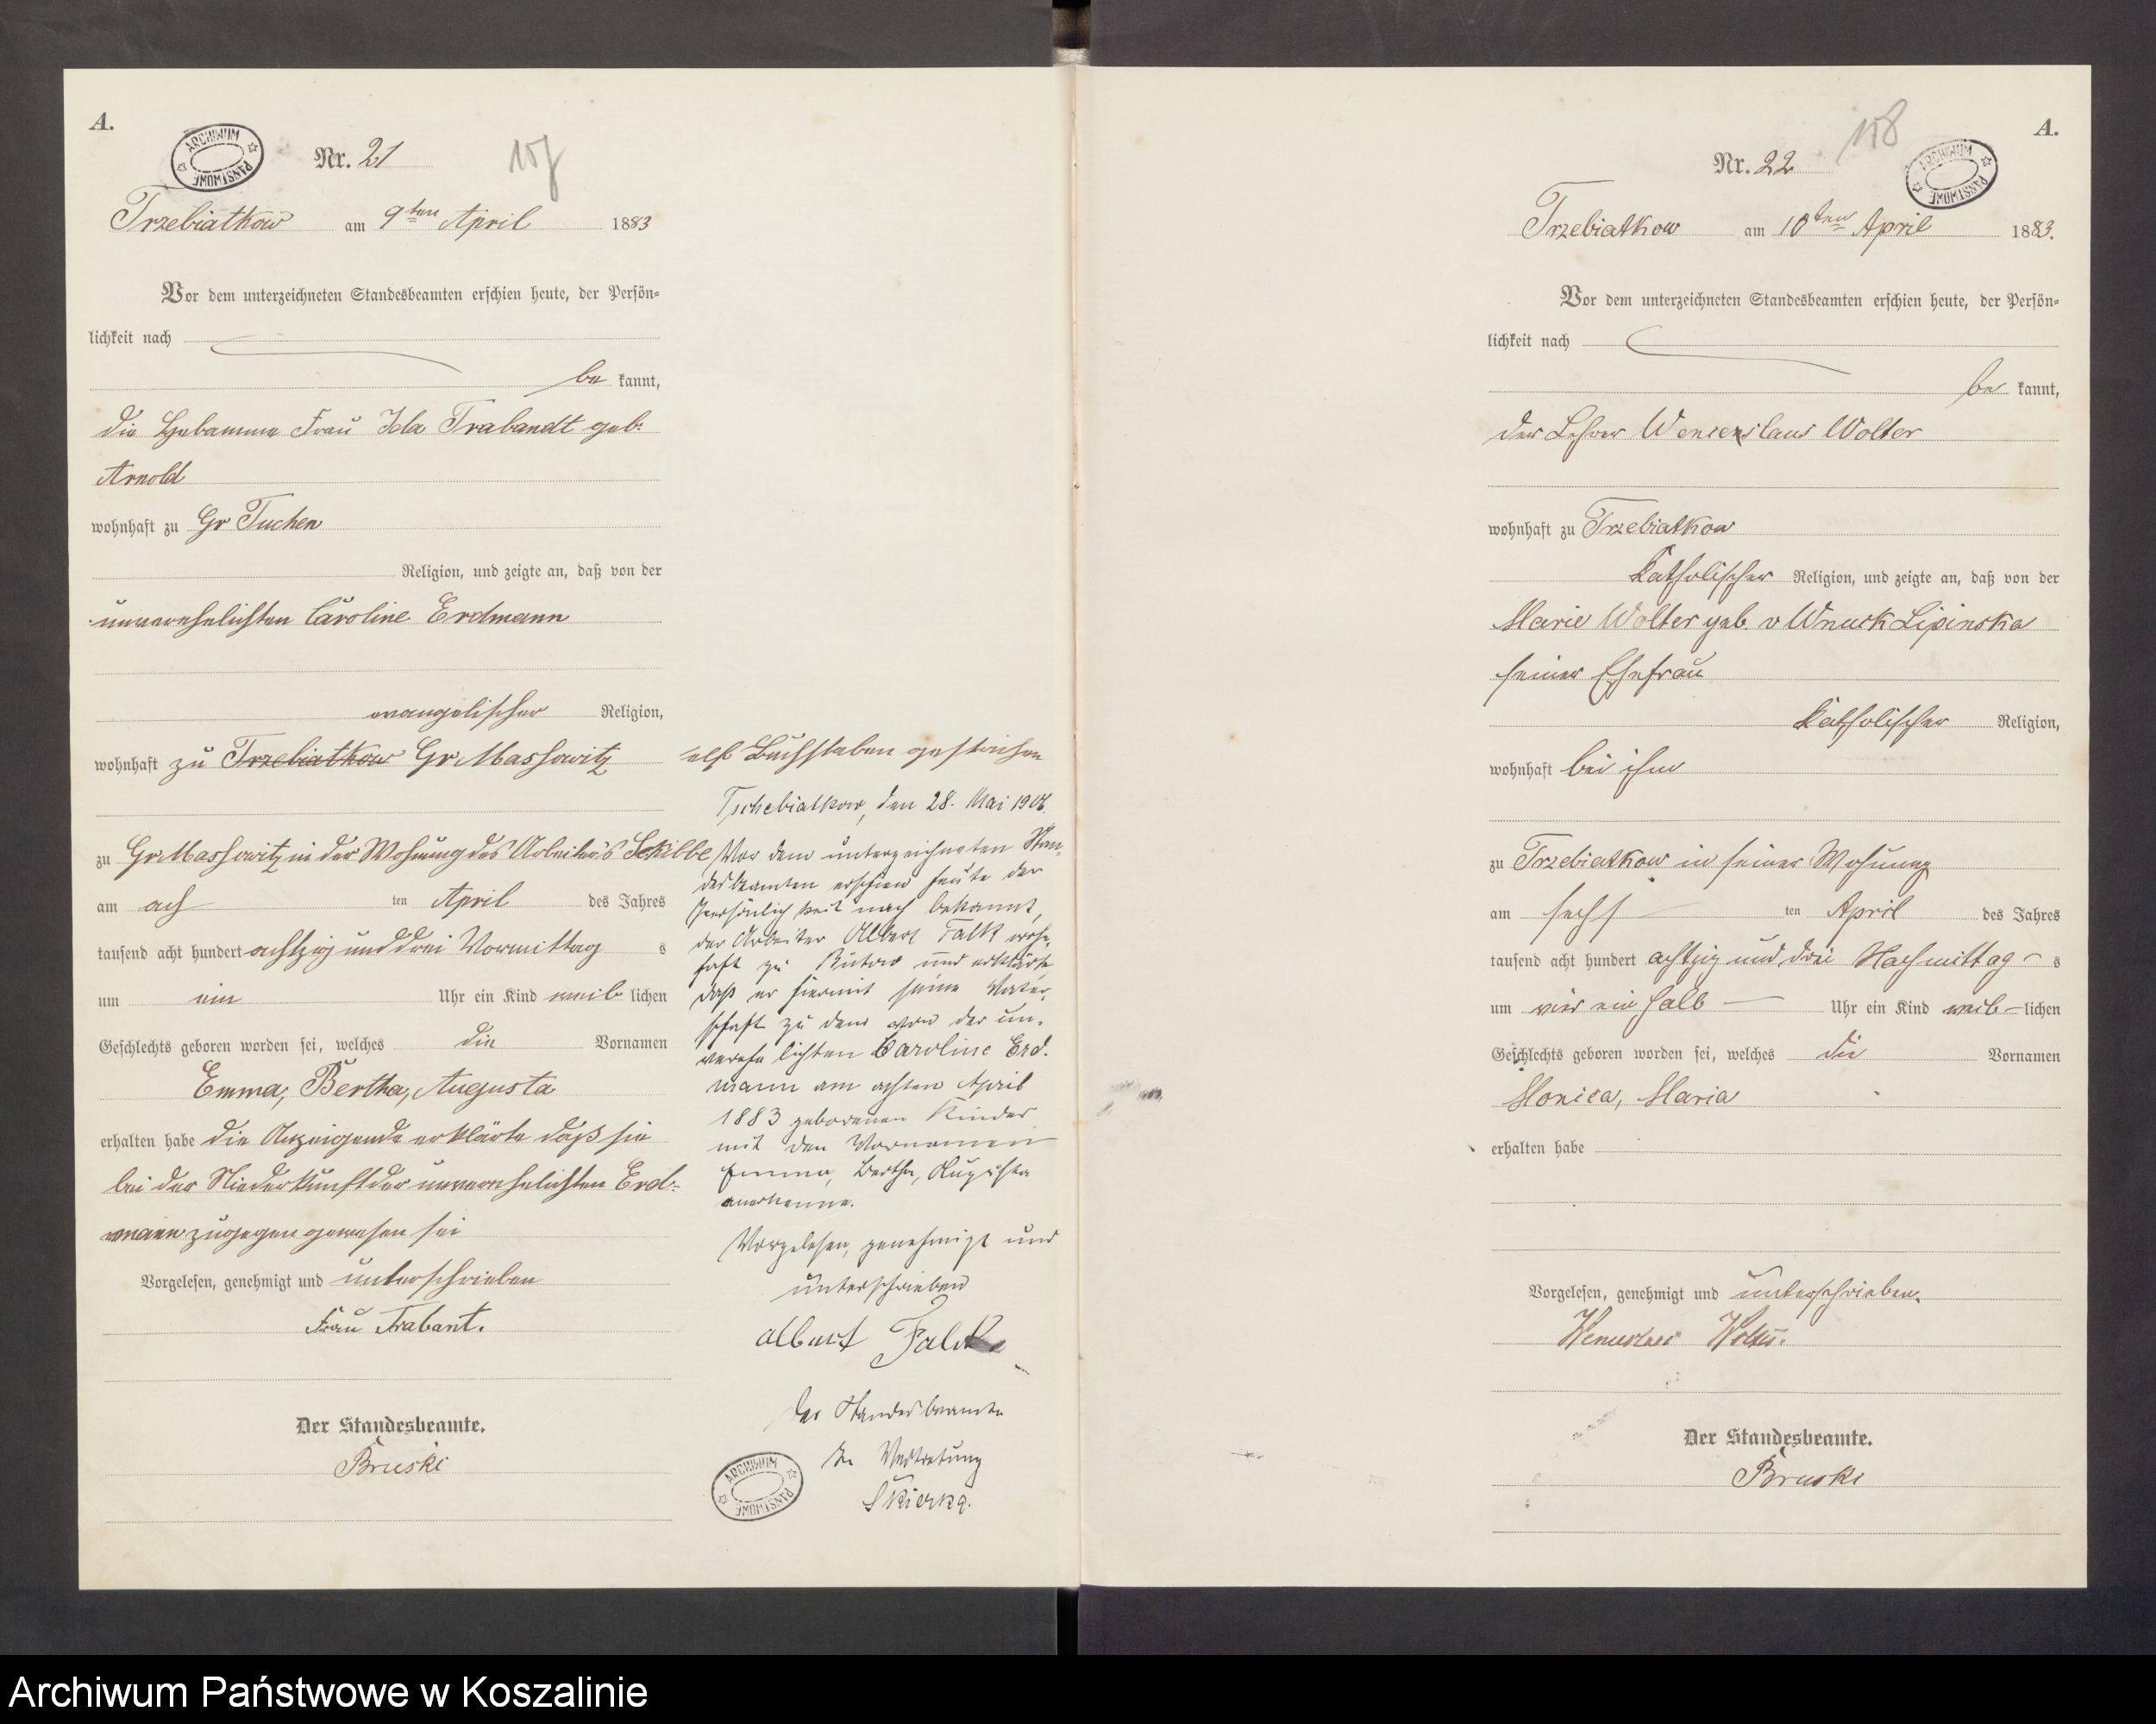 A.
ARCHIWUM PAŃSTWOWE
Nr. 21
107
Trzebiatkow am 9ten April 1883
Vor dem unterzeichneten Standesbeamten erschien heute, der Persön-
lichkeit nach
be kannt,
die Hebamme Frau Ida Trabandt geb:
Arnold
wohnhaft zu Gr Tuchen
Religion, und zeigte an, daß von der
unverehelichten Caroline Erdmann
evangelischer Religion,
wohnhaft zu Trzebiatkow Gr Massowitz
zu Gr Massowitz in der Wohnung des Arbeiters Skibbe
am ach ten April des Jahres
tausend acht hundert achtzig und drei Vormittag s
um ein Uhr ein Kind weib lichen
Geschlechts geboren worden sei, welches die Vornamen
Emma, Bertha, Augusta
erhalten habe die Anzeigende erklärte daß sie
bei der Niederkunft der unverehelichten Erd-
mann zugegen gewesen sei
Vorgelesen, genehmigt und unterschrieben
Frau Trabant.
Der Standesbeamte.
Bruski
elf Buchstaben gestrichen
Tschebiatkow, den 28. Mai 1906.
Vor dem unterzeichneten Stan-
desbeamten erschien heute der
Persönlichkeit nach bekannt,
der Arbeiter Albert Falk wohn-
haft zu Bütow und erklärte
daß er hiermit seine Vater-
schaft zu dem von der un-
verehelichten Caroline Erd-
mann am achten April
1883 geborenen Kinder
mit den Vornamen
Emma, Bertha, Augusta
anerkenne.
Vorgelesen, genehmigt und
unterschrieben
Albert Falk
Der Standesbeamte
In Vertretung
Skierka.
ARCHIWUM PAŃSTWOWE
A.
118
ARCHIWUM PAŃSTWOWE
Nr. 22
Trzebiatkow am 10ten April 1883.
Vor dem unterzeichneten Standesbeamten erschien heute, der Persön-
lichkeit nach
be kannt,
der Lehrer Wenceslaus Wolter
wohnhaft zu Trzebiatkow
katholischer Religion, und zeigte an, daß von der
Marie Wolter geb. v Wnuck Lipinska
seiner Ehefrau
katholischer Religion,
wohnhaft bei ihm
zu Trzebiatkow in seiner Wohnung
am sechs ten April des Jahres
tausend acht hundert achtzig und drei Nachmittag s
um vier ein halb Uhr ein Kind weib-lichen
Geschlechts geboren worden sei, welches die Vornamen
Monica, Maria
erhalten habe
Vorgelesen, genehmigt und unterschrieben.
Wenceslaus Wolter.
Der Standesbeamte.
Bruski
Archiwum Państwowe w Koszalinie